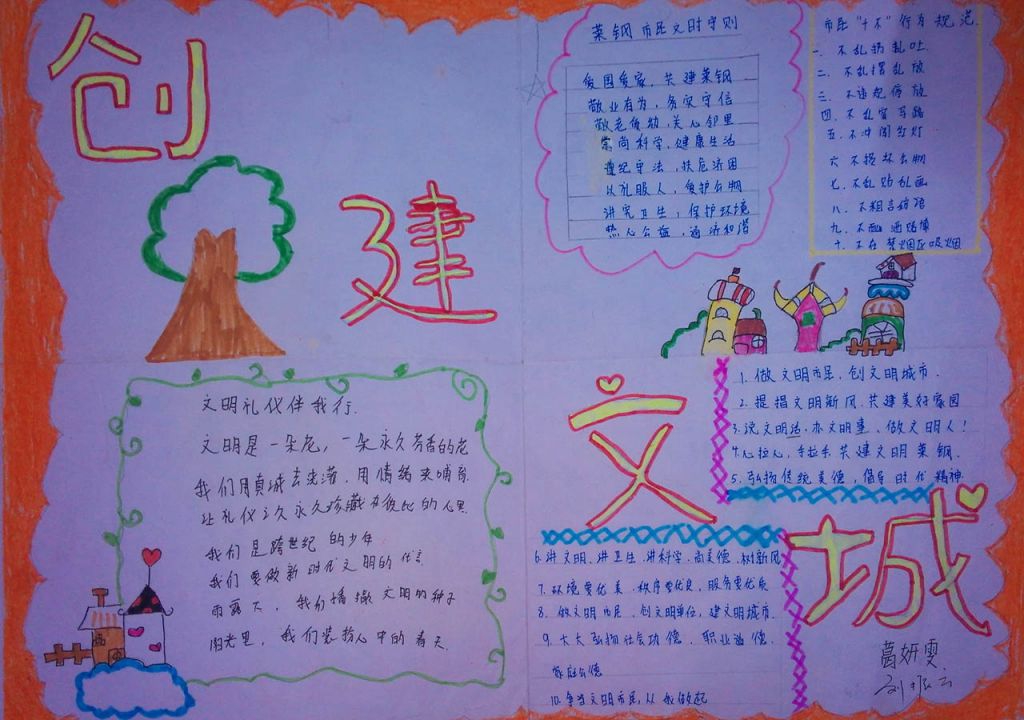 创
建
文
城
莱钢市民文明守则
爱国爱家，共建莱钢
敬业有为，务实守信
敬老爱幼，关心邻里
崇尚科学，健康生活
遵纪守法，扶危济困
以礼服人，爱护公物
讲究卫生，保护环境
热心公益，
市民"十不"行为规范
一、不乱扔乱吐
二、不乱摆乱放
三、不违起停放
四、不乱穿马路
五、不冲闯红灯
六、不损坏公物
七、不乱贴乱画
八、不粗言秽语
九、不酗酒赌博
十、不在禁烟区吸烟
文明礼仪伴我行.
文明是一朵花，一朵永久芳香的花
我们用真诚去浇灌．用情绪来哺育
让礼仪之久永久珍藏在彼此的心里
我们是跨世纪的少年
我们要做新时代文明的代言
雨露天，我们播撒文明的种子
阳光里，我们装扮心中的春天．
1. 做文明市民．创文明城市．
2. 提揖文明新风．共建美好家园
3. 说文明话．办文明事、做文明人！
4. 心拉心，手拉手．共建文明莱钢．
5. 弘扬传统美德，倡导时代精神．
6. 讲文明．讲卫生．讲科学．尚美德．树新风
7. 环境要优美．秩序要优良，服务要优质
8. 做文明市民、创文明单位，建文明城市．
9. 大大弘扬社会功德、职业道德、
家庭公德
10. 争当文明市民，从我做起
葛妍雯